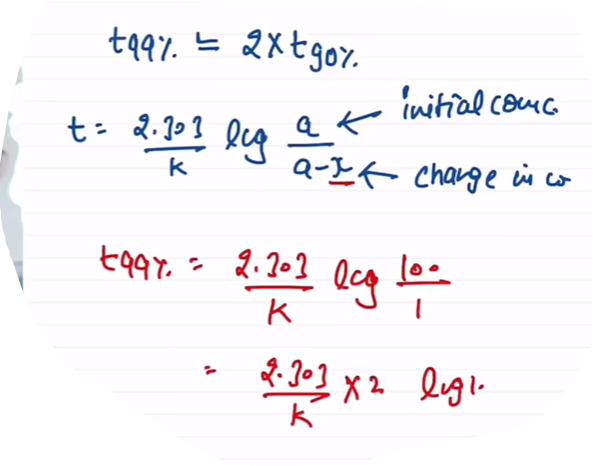 t99% = 2 x t90%
t = 2.303/K log a/a-x ← initial conc
← change in co
t99% = 2.303/K log 100/1
= 2.303/K x 2 log 1